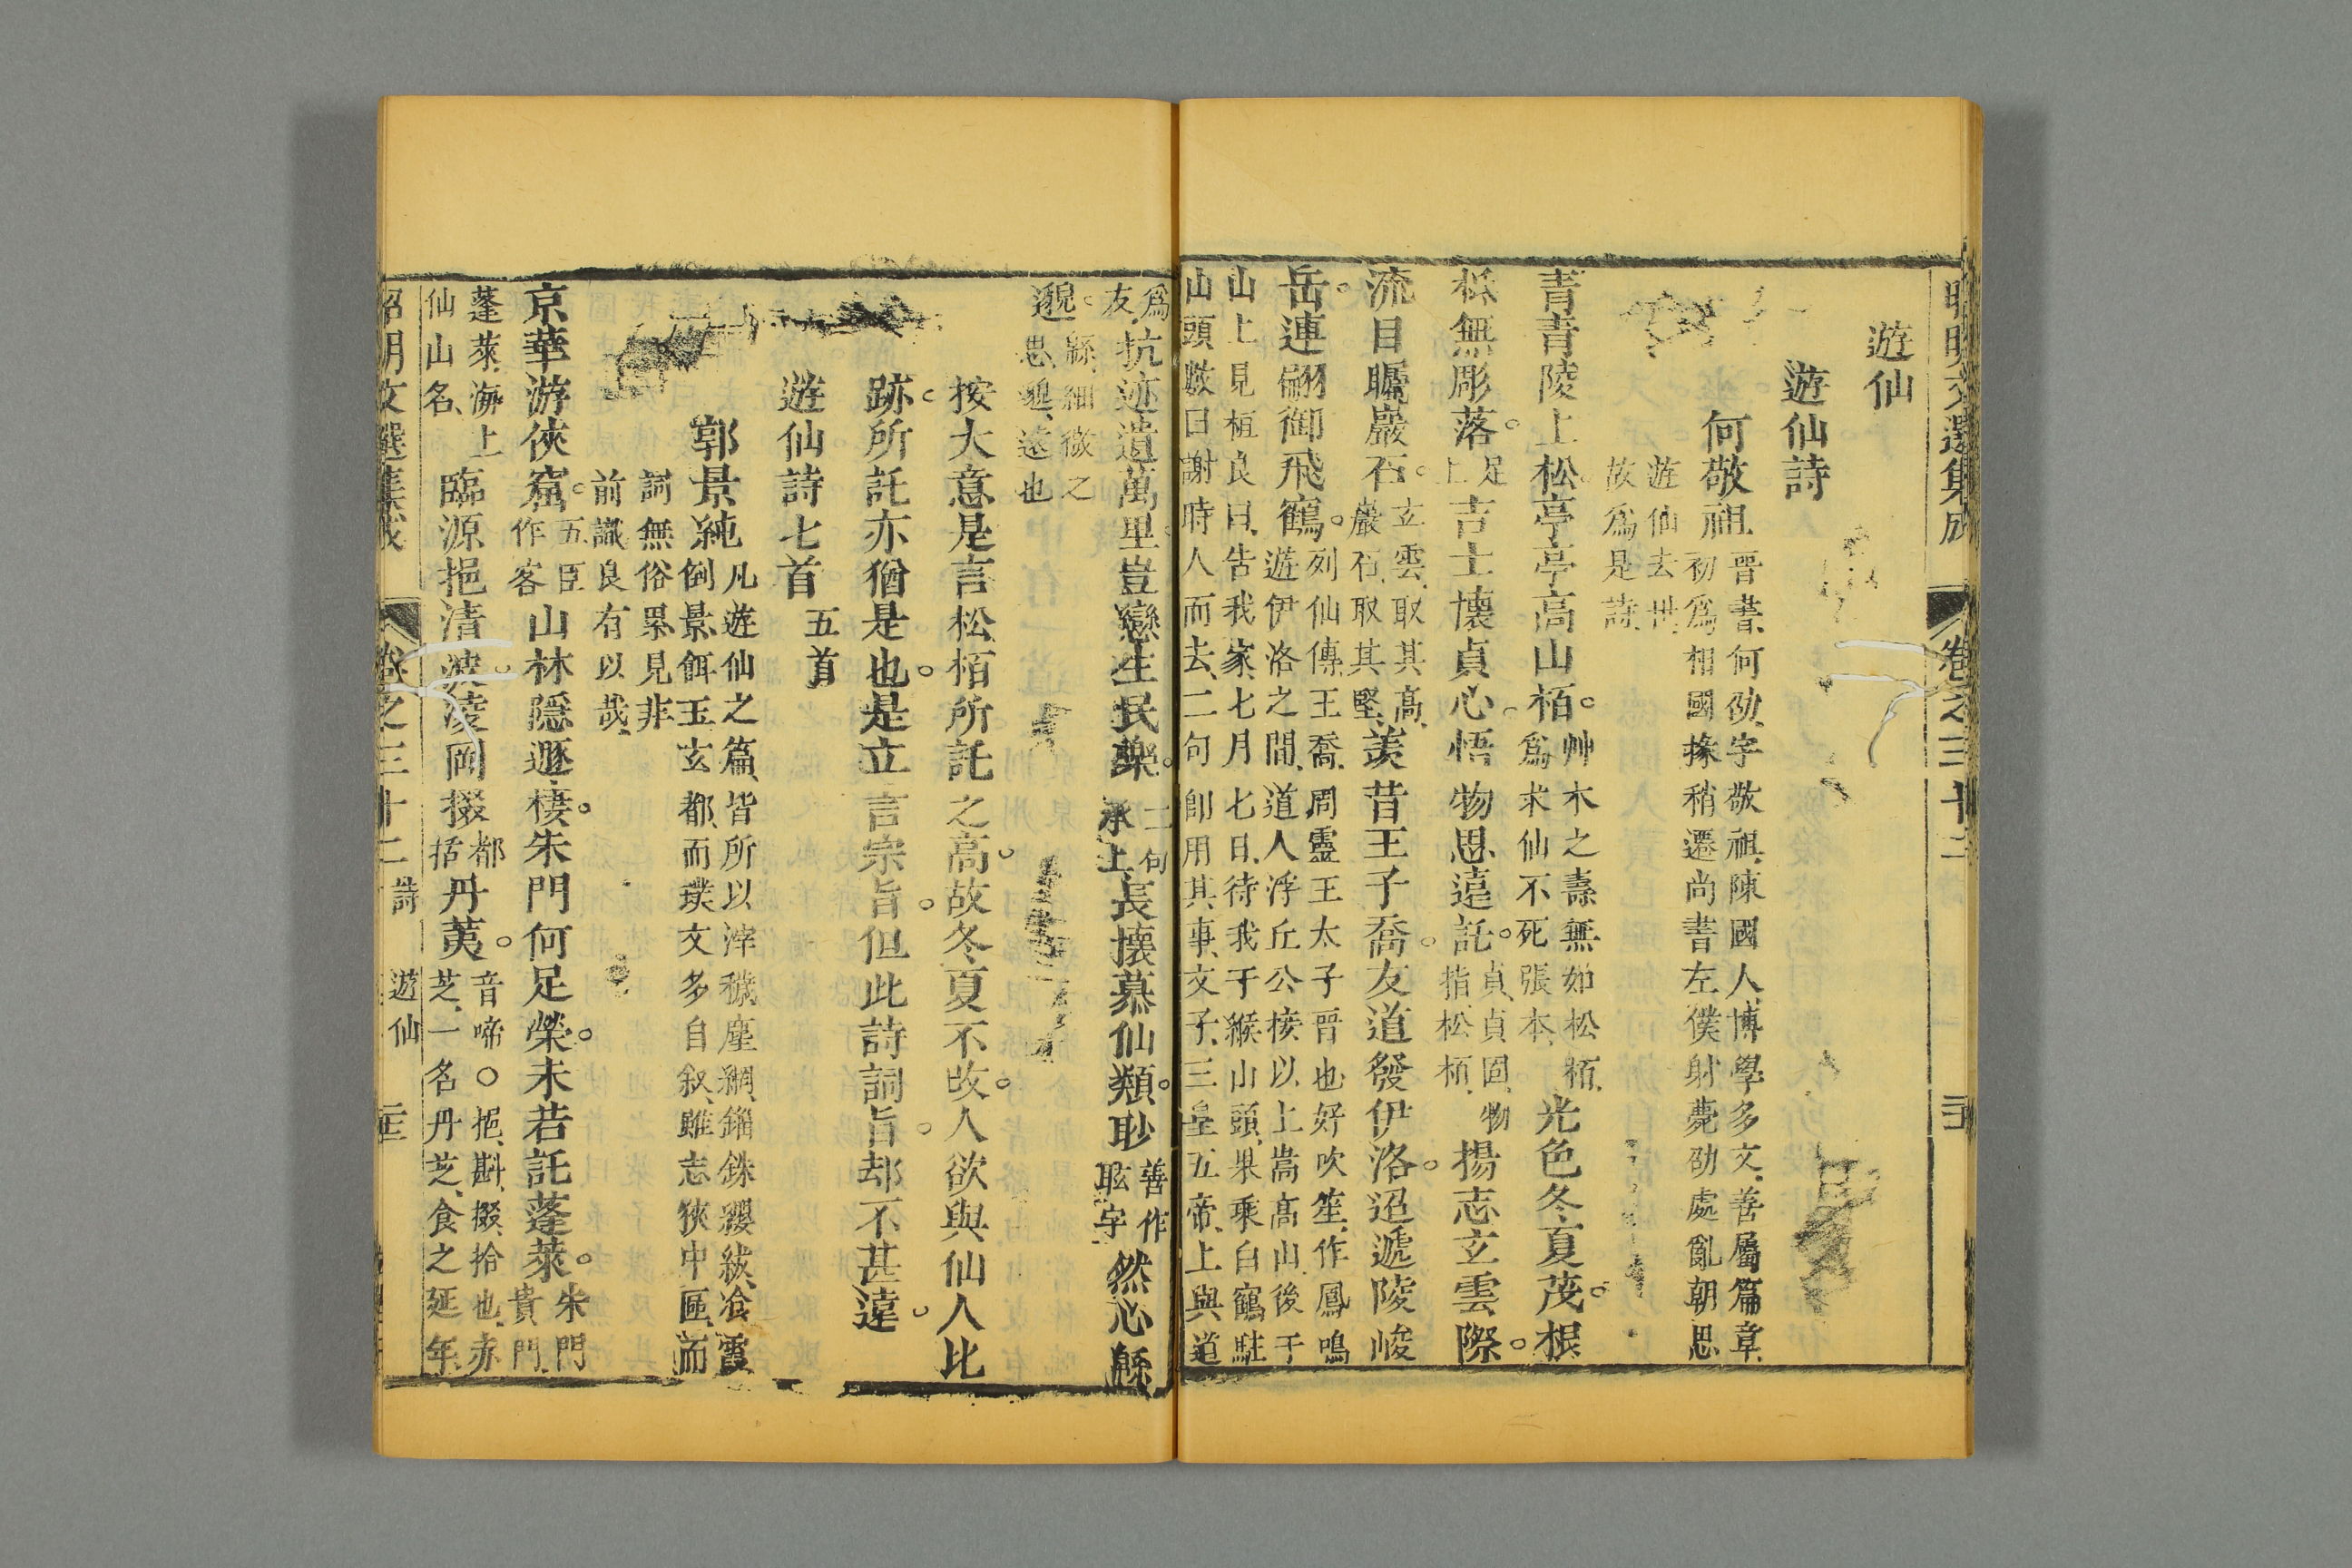 昭明文選集成 卷之三十二 三十
遊仙
遊仙詩
何敬祖 晉書、何劭、字敬祖、陳國人、博學多文、善屬篇章、
初爲相國掾稍遷尚書左僕射薨劭處亂朝思
遊仙去世、
故爲是詩、
青青陵上松。亭亭高山栢。艸木之壽無如松栢、
爲求仙不死張本、
光色冬夏茂。根
柢無彫落。足
上
吉士懷貞心。悟物思遠託。貞、貞固、物
指松栢、
揚志玄雲際。
流目矚巖石。玄雲、取其高、
巖石、取其堅、
羨昔王子喬。友道發伊洛。迢遞陵峻
岳。連翩御飛鶴。列仙傳、王喬、周靈王太子晉也好吹笙、作鳳鳴
遊伊洛之間、道人浮丘公接以上嵩高山後于
山上見桓良曰、告我家、七月七日、待我于緱山頭、果乘白鶴駐
山頭數日謝時人而去、二句卽用其事、文子、三皇五帝、上與道
爲
友、
抗迹遺萬里。豈戀生民樂。二句
承上
長懷慕仙類。眇善作
眩字
然心緜
邈。緜、細微之
思、邈、遠也
按大意是言松栢所託之高。故冬夏不改。人欲與仙人比
跡。所託亦猶是也。是立言宗旨。但此詩詞旨。却不甚遠。
遊仙詩七首 五首
郭景純 凡遊仙之篇、皆所以滓穢塵網、錙銖纓紱、飡霞
倒景、餌玉玄都、而璞文多自叙、雖志狹中區、而
詞無俗累、見非
前識良有以哉、
京華游俠窟。五臣
作客
山林隱遯棲。朱門何足榮。未若託蓬萊。朱門
貴門、
蓬萊、海上
仙山名、
臨源挹清波。凌岡掇都
括
丹荑。音啼〇挹、斟、掇、拾也、赤
芝、一名丹芝、食之延年、
昭明文選集成 卷之三十二 詩 遊仙 三十